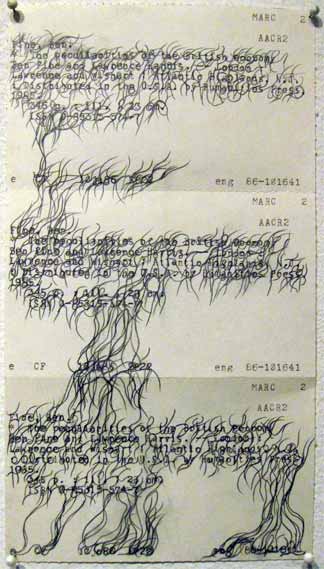 MARC 2
AACR2
Fine, Ben.
The peculiarities of the British economy
Ben Fine and Laurence Harris. -- London :
Lawrence and Wishart ; Atlantic Highlands, N.J.
: Distributed in the U.S.A. by Humanities Press,
1985.
345 p. : ill. ; 23 cm.
ISBN 0-85315-574-
e CF
eng 86-101641
MARC 2
AACR2
Fine, Ben.
The peculiarities of the British economy
Ben Fine and Laurence Harris. -- London :
Lawrence and Wishart ; Atlantic Highlands, N.J.
: Distributed in the U.S.A. by Humanities Press,
1985.
345 p. : ill. ; 23 cm.
ISBN 0-85315-574-
e CF
eng 86-101641
MARC 2
AACR2
Fine, Ben.
The peculiarities of the British economy
Ben Fine and Laurence Harris. -- London :
Lawrence and Wishart ; Atlantic Highlands, N.J.
: Distributed in the U.S.A. by Humanities Press,
1985.
345 p. : ill. ; 23 cm.
ISBN 0-85315-574-